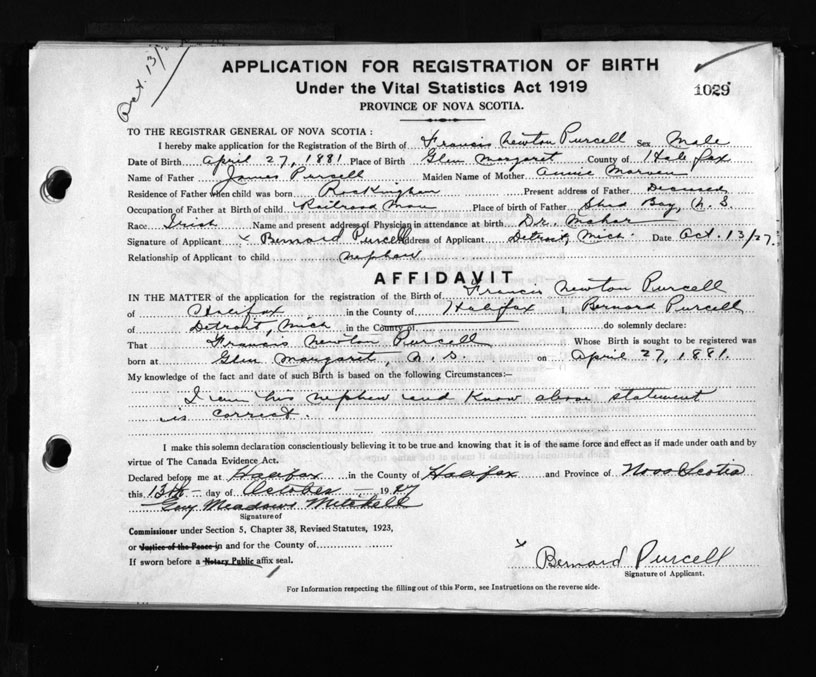 Oct. 13/27
APPLICATION FOR REGISTRATION OF BIRTH
Under the Vital Statistics Act 1919
1029
PROVINCE OF NOVA SCOTIA.
TO THE REGISTRAR GENERAL OF NOVA SCOTIA :
I hereby make application for the Registration of the Birth of Francis Newton Purcell Sex Male
Date of Birth April 27, 1881 Place of Birth Glen Margaret County of Halifax
Name of Father James Purcell Maiden Name of Mother Annie
Residence of Father when child was born Rockingham Present address of Father Deceased
Occupation of Father at Birth of child Railroad Man Place of birth of Father Shad Bay, N.S.
Race Irish Name and present address of Physician in attendance at birth Dr.
Signature of Applicant x Bernard Purcell Address of Applicant Detroit, Mich. Date Oct. 13/27
Relationship of Applicant to child nephew
AFFIDAVIT
IN THE MATTER of the application for the registration of the Birth of Francis Newton Purcell
of Halifax in the County of Halifax I, Bernard Purcell
of Detroit, Mich in the County of do solemnly declare:
That Francis Newton Purcell Whose Birth is sought to be registered was
born at Glen Margaret, N.S. on April 27, 1881.
My knowledge of the fact and date of such Birth is based on the following Circumstances:—
I am his nephew and know above statement
is correct.
I make this solemn declaration conscientiously believing it to be true and knowing that it is of the same force and effect as if made under oath and by
virtue of The Canada Evidence Act.
Declared before me at Halifax in the County of Halifax and Province of Nova Scotia
this 13th day of October 1927
Guy Meadows Mitchell
Signature of
Commissioner under Section 5, Chapter 38, Revised Statutes, 1923,
or Justice of the Peace in and for the County of
If sworn before a Notary Public affix seal.
x Bernard Purcell
Signature of Applicant.
For Information respecting the filling out of this Form, see Instructions on the reverse side.